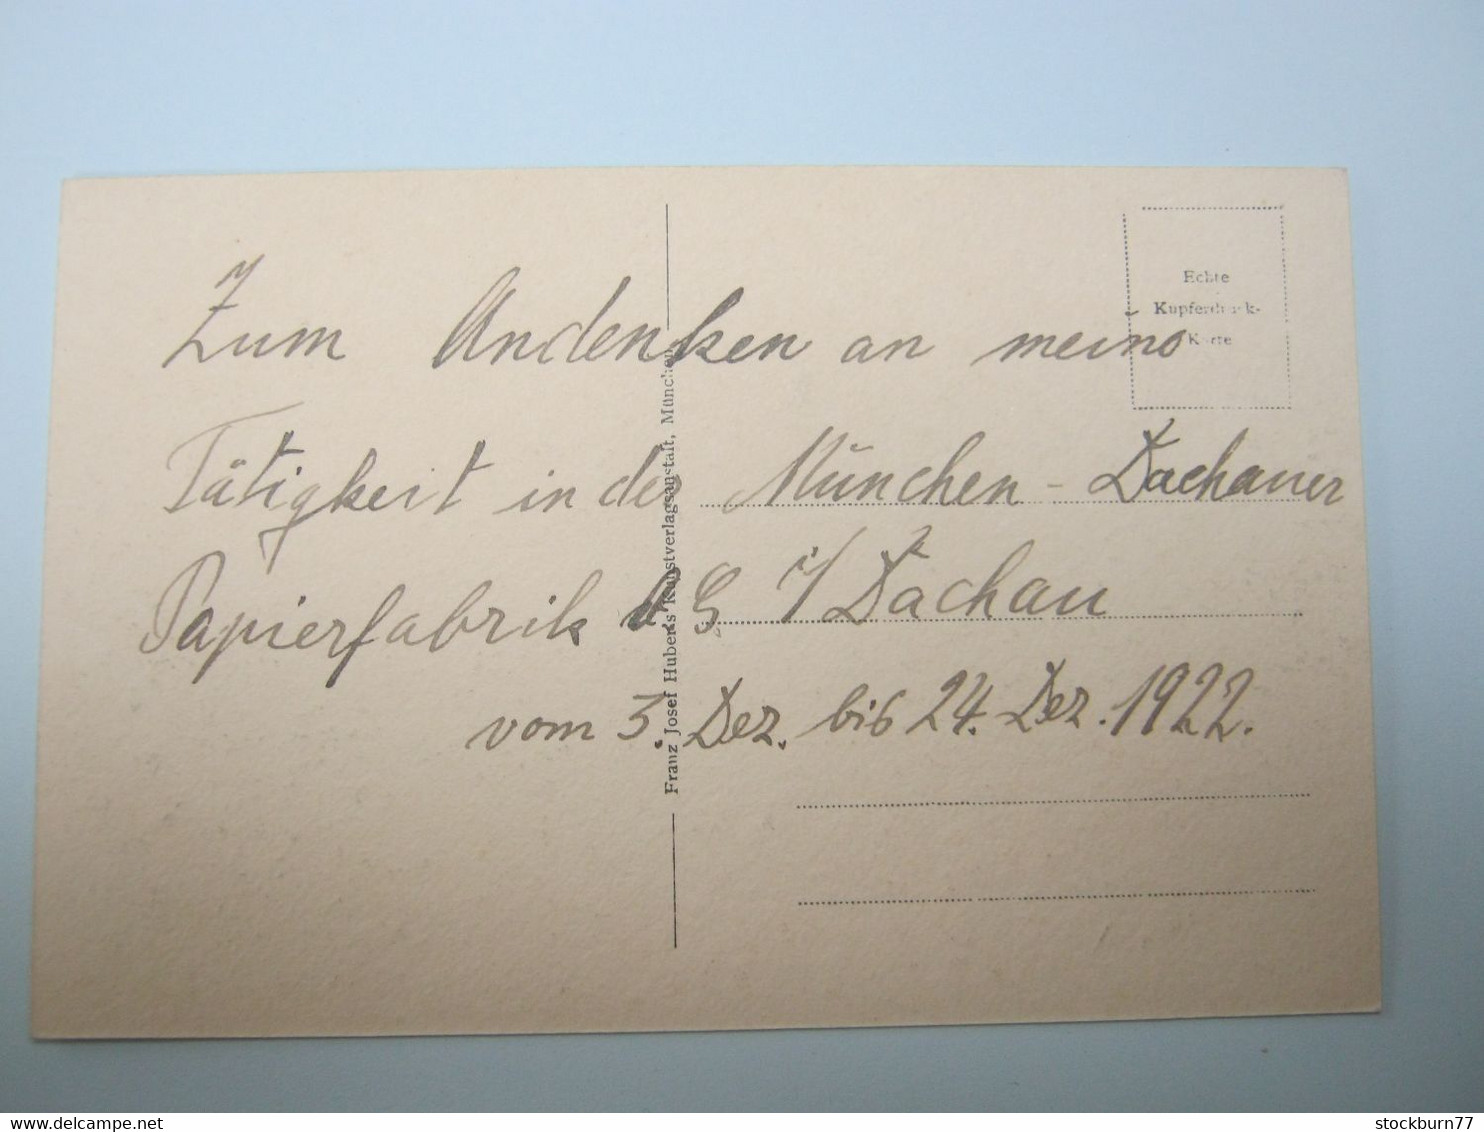 Zum Andenken an meine
Tätigkeit in der München - Dachauer
Papierfabrik A G i/Dachau
vom 3. Dez. bis 24. Dez. 1922.
Franz Josef Huber's Kunstverlagsanstalt, München
Echte
Kupferdruck-
Karte
stockburn77